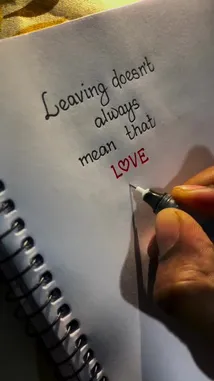 Leaving doesn't
always
mean that
L♡VE